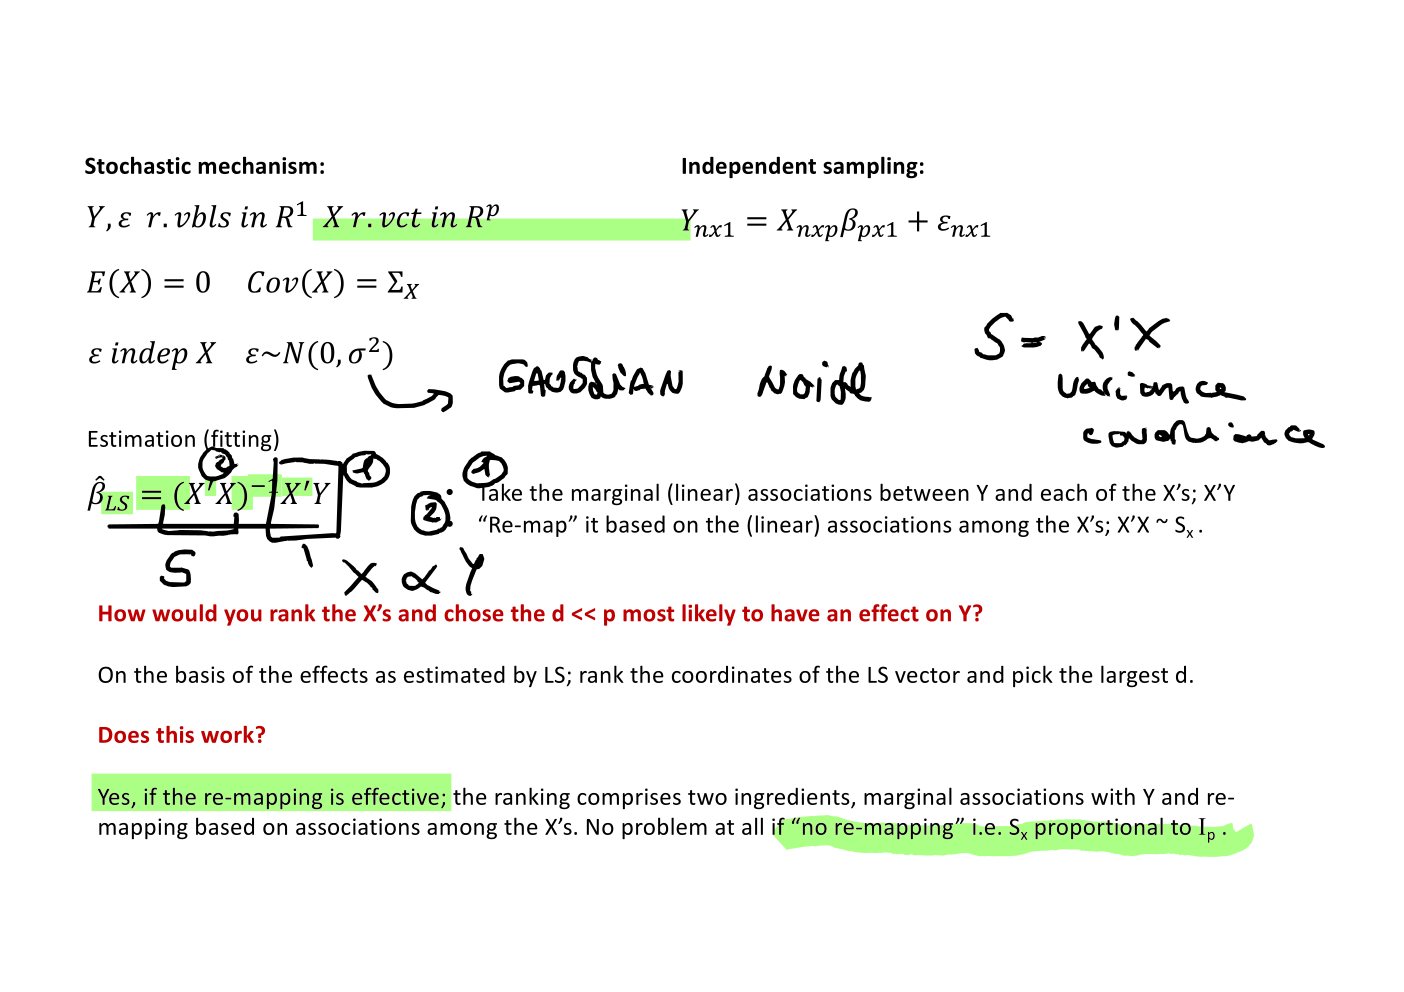 Stochastic mechanism:
Independent sampling:
Y, ε r. vbls in R¹ X r. vct in Rᵖ
Yₙₓ₁ = Xₙₓₚβₚₓ₁ + εₙₓ₁
E(X) = 0 Cov(X) = Σ_X
S = X'X
variance
covariance
ε indep X ε~N(0, σ²)
GAUSSIAN NOISE
Estimation (fitting)
2
β̂_LS = (X′X)⁻¹X′Y
1
S
1
X ∝ Y
1
Take the marginal (linear) associations between Y and each of the X’s; X’Y
2
“Re-map” it based on the (linear) associations among the X’s; X’X ~ Sₓ .
How would you rank the X’s and chose the d << p most likely to have an effect on Y?
On the basis of the effects as estimated by LS; rank the coordinates of the LS vector and pick the largest d.
Does this work?
Yes, if the re-mapping is effective; the ranking comprises two ingredients, marginal associations with Y and re-
mapping based on associations among the X’s. No problem at all if “no re-mapping” i.e. Sₓ proportional to Iₚ .